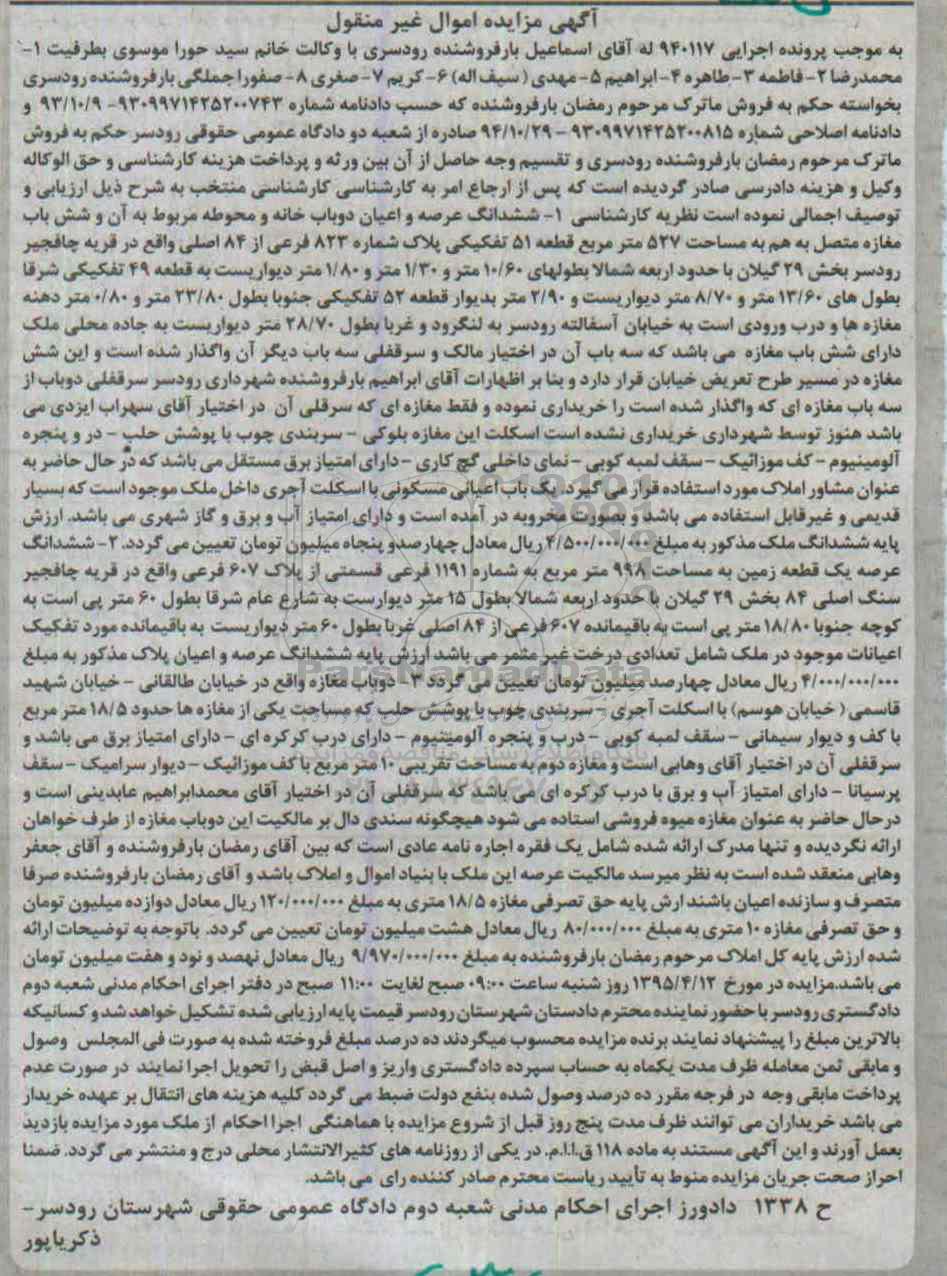 آگهی مزایده اموال غیر منقول
به موجب پرونده اجرایی ۹۴۰۱۱۷ له آقای اسماعیل بارفروشنده رودسری با وکالت خانم سید حورا موسوی بطرفیت ۱-
محمدرضا ۲- فاطمه ۳- طاهره ۴- ابراهیم ۵- مهدی (سیف اله) ۶- کریم ۷- صغری ۸- صفورا جملگی بارفروشنده رودسری
بخواسته حکم به فروش ماترک مرحوم رمضان بارفروشنده که حسب دادنامه شماره ۹۳۰۹۹۷۱۴۲۵۲۰۰۷۴۳- ۹۳/۱۰/۹ و
دادنامه اصلاحی شماره ۹۳۰۹۹۷۱۴۲۵۲۰۰۸۱۵ - ۹۴/۱۰/۲۹ صادره از شعبه دو دادگاه عمومی حقوقی رودسر حکم به فروش
ماترک مرحوم رمضان بارفروشنده رودسری و تقسیم وجه حاصل از آن بین ورثه و پرداخت هزینه کارشناسی و حق الوکاله
وکیل و هزینه دادرسی صادر گردیده است که پس از ارجاع امر به کارشناسی کارشناسی منتخب به شرح ذیل ارزیابی و
توصیف اجمالی نموده است نظریه کارشناسی ۱- ششدانگ عرصه و اعیان دوباب خانه و محوطه مربوط به آن و شش باب
مغازه متصل به هم به مساحت ۵۲۷ متر مربع قطعه ۵۱ تفکیکی پلاک شماره ۸۲۳ فرعی از ۸۴ اصلی واقع در قریه چافجیر
رودسر بخش ۲۹ گیلان با حدود اربعه شمالا بطولهای ۱۰/۶۰ متر و ۱/۳۰ متر و ۱/۸۰ متر دیواریست به قطعه ۴۹ تفکیکی شرقا
بطول های ۱۳/۶۰ متر و ۸/۷۰ متر دیواریست و ۲/۹۰ متر بدیوار قطعه ۵۲ تفکیکی جنوبا بطول ۲۳/۸۰ متر و ۰/۸۰ متر دهنه
مغازه ها و درب ورودی است به خیابان آسفالته رودسر به لنگرود و غربا بطول ۲۸/۷۰ متر دیواریست به جاده محلی ملک
دارای شش باب مغازه می باشد که سه باب آن در اختیار مالک و سرقفلی سه باب دیگر آن واگذار شده است و این شش
مغازه در مسیر طرح تعریض خیابان قرار دارد و بنا بر اظهارات آقای ابراهیم بارفروشنده شهرداری رودسر سرقفلی دوباب از
سه باب مغازه ای که واگذار شده است را خریداری نموده و فقط مغازه ای که سرقلی آن در اختیار آقای سهراب ایزدی می
باشد هنوز توسط شهرداری خریداری نشده است اسکلت این مغازه بلوکی - سربندی چوب با پوشش حلب - در و پنجره
آلومینیوم - کف موزائیک - سقف لمبه کوبی - نمای داخلی گچ کاری - دارای امتیاز برق مستقل می باشد که در حال حاضر به
عنوان مشاور املاک مورد استفاده قرار می گیرد. یک باب اعیانی مسکونی با اسکلت آجری داخل ملک موجود است که بسیار
قدیمی و غیرقابل استفاده می باشد و بصورت مخروبه در آمده است و دارای امتیاز آب و برق و گاز شهری می باشد. ارزش
پایه ششدانگ ملک مذکور به مبلغ ۴/۵۰۰/۰۰۰/۰۰۰ ریال معادل چهارصدو پنجاه میلیون تومان تعیین می گردد. ۲- ششدانگ
عرصه یک قطعه زمین به مساحت ۹۹۸ متر مربع به شماره ۱۱۹۱ فرعی قسمتی از پلاک ۶۰۷ فرعی واقع در قریه چافجیر
سنگ اصلی ۸۴ بخش ۲۹ گیلان با حدود اربعه شمالا بطول ۱۵ متر دیوارست به شارع عام شرقا بطول ۶۰ متر پی است به
کوچه جنوبا ۱۸/۸۰ متر پی است به باقیمانده ۶۰۷ فرعی از ۸۴ اصلی غربا بطول ۶۰ متر دیواریست به باقیمانده مورد تفکیک
اعیانات موجود در ملک شامل تعدادی درخت غیر مثمر می باشد ارزش پایه ششدانگ عرصه و اعیان پلاک مذکور به مبلغ
۴/۰۰۰/۰۰۰/۰۰۰ ریال معادل چهارصد میلیون تومان تعیین می گردد ۳- دوباب مغازه واقع در خیابان طالقانی - خیابان شهید
قاسمی (خیابان هوسم) با اسکلت آجری - سربندی چوب با پوشش حلب که مساحت یکی از مغازه ها حدود ۱۸/۵ متر مربع
با کف و دیوار سیمانی - سقف لمبه کوبی - درب و پنجره آلومینیوم - دارای درب کرکره ای - دارای امتیاز برق می باشد و
سرقفلی آن در اختیار آقای وهابی است و مغازه دوم به مساحت تقریبی ۱۰ متر مربع با کف موزائیک - دیوار سرامیک - سقف
پرسیانا - دارای امتیاز آب و برق با درب کرکره ای می باشد که سرقفلی آن در اختیار آقای محمدابراهیم عابدینی است و
درحال حاضر به عنوان مغازه میوه فروشی استاده می شود هیچگونه سندی دال بر مالکیت این دوباب مغازه از طرف خواهان
ارائه نگردیده و تنها مدرک ارائه شده شامل یک فقره اجاره نامه عادی است که بین آقای رمضان بارفروشنده و آقای جعفر
وهابی منعقد شده است به نظر میرسد مالکیت عرصه این ملک با بنیاد اموال و املاک باشد و آقای رمضان بارفروشنده صرفا
متصرف و سازنده اعیان باشند ارش پایه حق تصرفی مغازه ۱۸/۵ متری به مبلغ ۱۲۰/۰۰۰/۰۰۰ ریال معادل دوازده میلیون تومان
و حق تصرفی مغازه ۱۰ متری به مبلغ ۸۰/۰۰۰/۰۰۰ ریال معادل هشت میلیون تومان تعیین می گردد. باتوجه به توضیحات ارائه
شده ارزش پایه کل املاک مرحوم رمضان بارفروشنده به مبلغ ۹/۹۷۰/۰۰۰/۰۰۰ ریال معادل نهصد و نود و هفت میلیون تومان
می باشد.مزایده در مورخ ۱۳۹۵/۴/۱۲ روز شنبه ساعت ۰۹:۰۰ صبح لغایت ۱۱:۰۰ صبح در دفتر اجرای احکام مدنی شعبه دوم
دادگستری رودسر با حضور نماینده محترم دادستان شهرستان رودسر قیمت پایه ارزیابی شده تشکیل خواهد شد و کسانیکه
بالاترین مبلغ را پیشنهاد نمایند برنده مزایده محسوب میگردند ده درصد مبلغ فروخته شده به صورت فی المجلس وصول
و مابقی ثمن معامله ظرف مدت یکماه به حساب سپرده دادگستری واریز و اصل قبض را تحویل اجرا نمایند در صورت عدم
پرداخت مابقی وجه در فرجه مقرر ده درصد وصول شده بنفع دولت ضبط می گردد کلیه هزینه های انتقال بر عهده خریدار
می باشد خریداران می توانند ظرف مدت پنج روز قبل از شروع مزایده با هماهنگی اجرا احکام از ملک مورد مزایده بازدید
بعمل آورند و این آگهی مستند به ماده ۱۱۸ ق.ا.ا.م. در یکی از روزنامه های کثیرالانتشار محلی درج و منتشر می گردد. ضمنا
احراز صحت جریان مزایده منوط به تأیید ریاست محترم صادر کننده رای می باشد.
ح ۱۳۳۸ دادورز اجرای احکام مدنی شعبه دوم دادگاه عمومی حقوقی شهرستان رودسر-
ذکریاپور
ParsNamadData